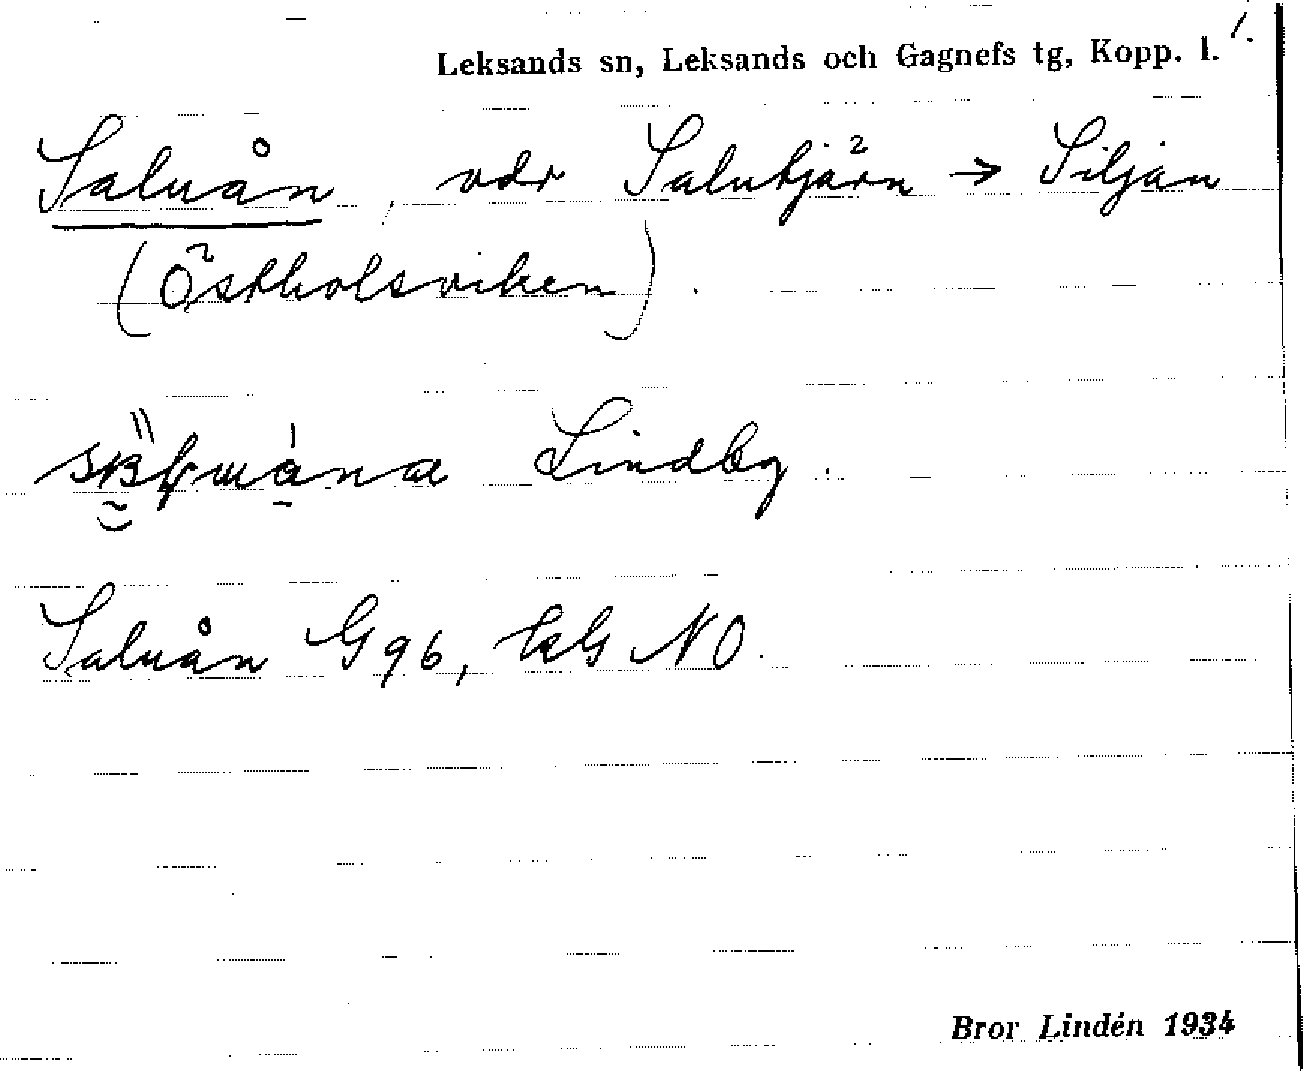 1.
Leksands sn, Leksands och Gagnefs tg, Kopp. l.
Saluån, vdr Salutjärn → Siljan
(Östholsviken).
Lindby.
Saluån G96, kbl NO.
Bror Lindén 1934